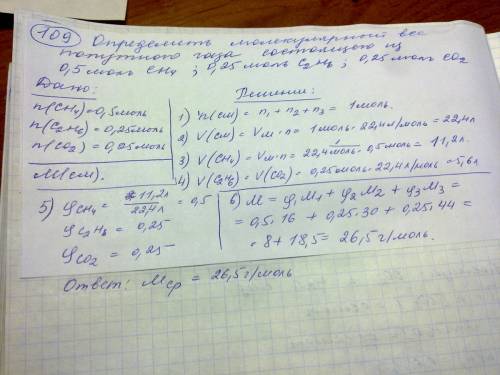 109 Определить молекулярный вес
попутного газа состоящего из
0,5 моль CH4 ; 0,25 моль C2H6 ; 0,25 моль CO2
Дано:
n(CH4)=0,5моль
n(C2H6)=0,25моль
n(CO2)=0,25моль
M(см).
Решение:
1) n(см) = n1 + n2 + n3 = 1 моль.
2) V(см) = Vм · n = 1 моль · 22,4 л/моль = 22,4л
3) V(CH4) = Vм·n = 22,4 л/моль · 0,5 моль = 11,2л.
4) V(C2H6) = V(CO2) = 0,25 моль · 22,4 л/моль = 5,6л
5) φCH4 = 11,2л / 22,4л = 0,5
φC2H6 = 0,25
φCO2 = 0,25
6) M = φ1M1 + φ2M2 + φ3M3 =
= 0,5·16 + 0,25·30 + 0,25·44 =
= 8 + 18,5 = 26,5 г/моль.
Ответ: Mср = 26,5 г/моль